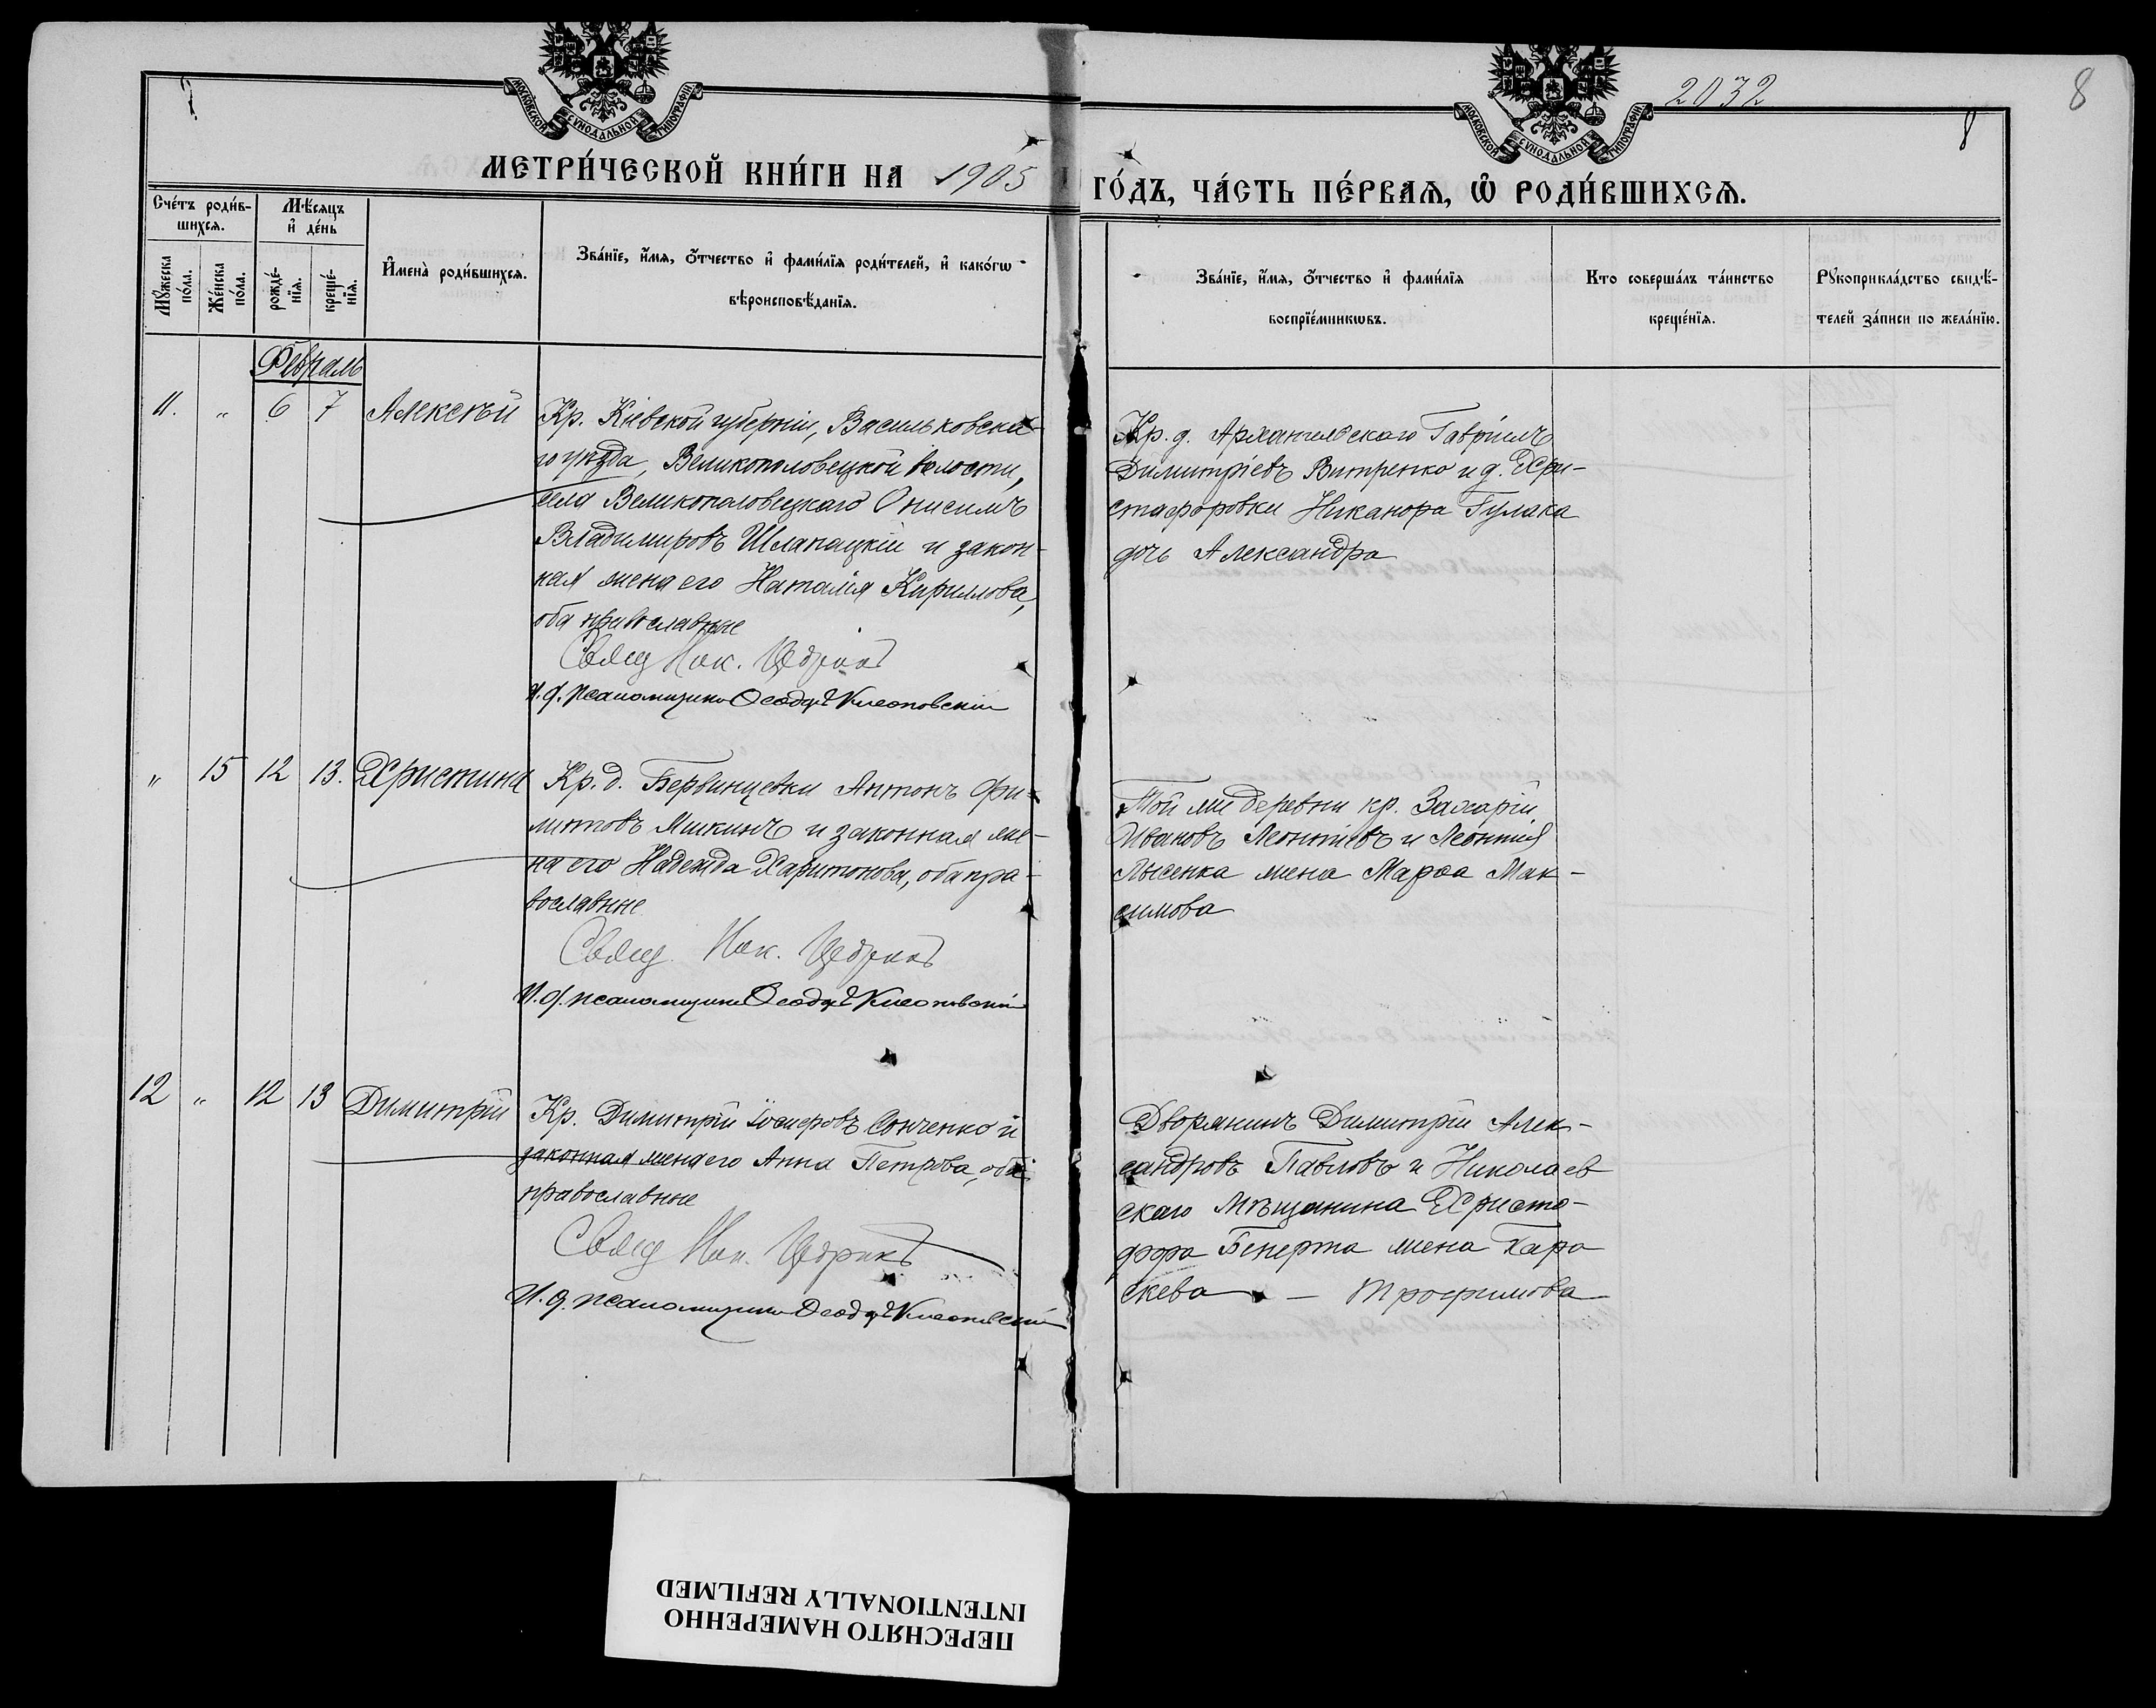 2032
8
8
МОСКОВСКОЙ СѴНОДАЛЬНОЙ ТИПОГРАФІИ
МОСКОВСКОЙ СѴНОДАЛЬНОЙ ТИПОГРАФІИ
МЕТРИ́ЧЕСКОЙ КНИ́ГИ НА 1905
ГО́ДЪ, ЧА́СТЬ ПЕ́РВАѦ, Ѽ РОДИ́ВШИХСѦ.
Сче́тъ роди́в-
шихсѧ.
Мѣ́сѧцъ
и҆ де́нь
Мꙋ́жеска
по́ла.
Же́нска
по́ла.
рожде́-
нїѧ.
креще́-
нїѧ.
И҆мена̀ роди́вшихсѧ.
Зва́нїе, и҆́мѧ, ѻ҆́тчество и҆ фами́лїѧ роди́телей, и҆ како́гѡ
вѣроисповѣ́данїѧ.
Зва́нїе, и҆́мѧ, ѻ҆́тчество и҆ фами́лїѧ
воспрїе́мникѡвъ.
Кто соверша́лъ та́инство
креще́нїѧ.
Рꙋкоприкла́дство свидѣ́-
телей за́писи по жела́нїю.
Февраль
11. " 6 7 Алексѣй
Кр. Кіевской губерніи, Васильковска-
го уѣзда, Великополовецкой волости,
села Великополовецкаго Онисимъ
Владимировъ Шлапацкій и закон-
ная жена его Наталія Кириллова,
оба православные
Свящ Ник.
И. д. псаломщика Ѳеодоръ
Кр. д. Архангельскаго Гавріилъ
Димитріевъ Витренко и д. Хри-
стофоровки Никанора Гулака
дочь Александра
" 15 12 13. Христина
Кр. д. Бервинцевки Антонъ Фи-
липповъ Яшкинъ и законная же-
на его Надежда Харитонова, оба пра-
вославные
Свящ. Ник.
И. д. псаломщика Ѳеодоръ
Той же деревни кр. Захарій
Ивановъ Леонтіевъ и Леонтія
Лысенка жена Марѳа Мак-
симова
12 " 12 13 Димитрій
Кр. Димитрій Іосифовъ Сонченко и
законная жена его Анна Петрова, оба
православные
Свящ Ник.
И. д. псаломщика Ѳеодоръ
Дворянинъ Димитрій Алек-
сандровъ Павловъ и Николаев
скаго мѣщанина Христо-
фора Бенерта жена Пара
скева — Трофимова
ПЕРЕСНЯТО НАМЕРЕННО
INTENTIONALLY REFILMED